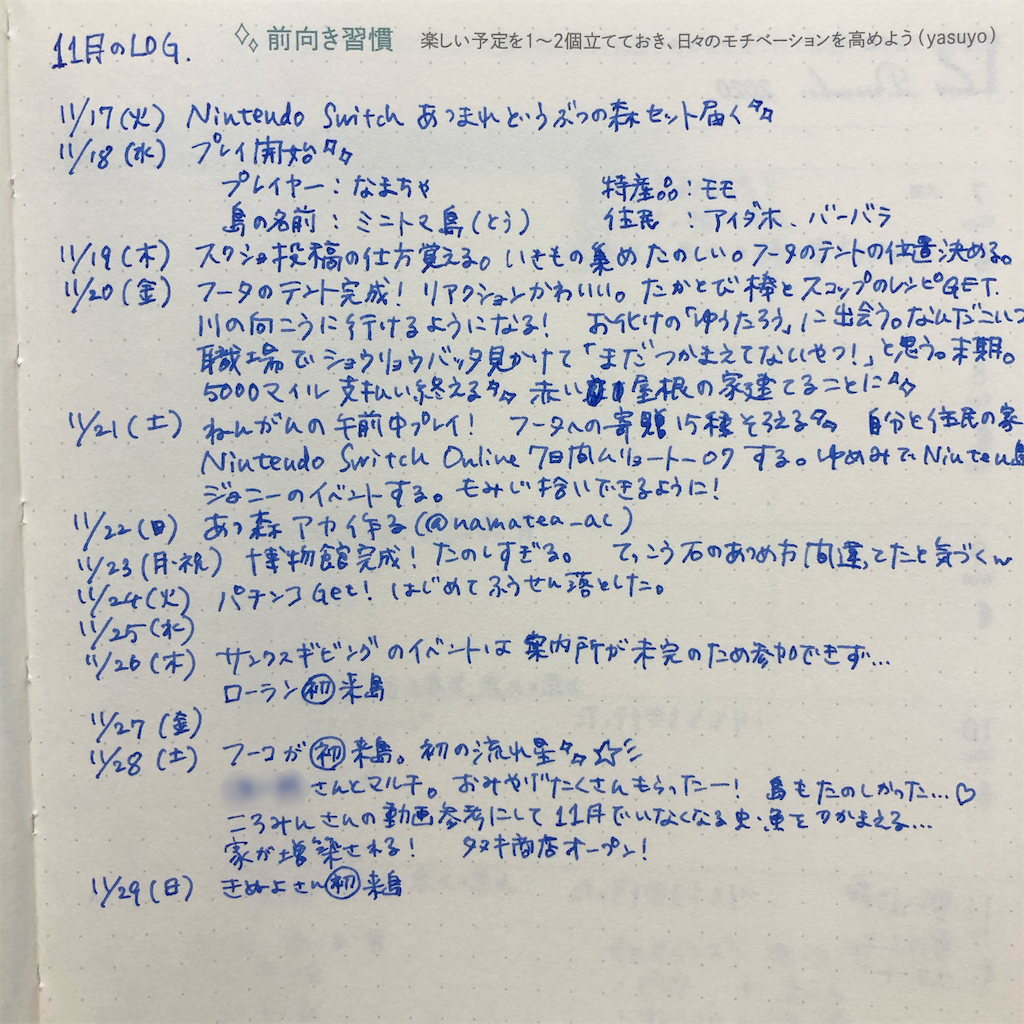 11月のLOG.
前向き習慣 楽しい予定を1〜2個立てておき、日々のモチベーションを高めよう(yasuyo)
11/17(火) Nintendo Switch あつまれどうぶつの森セット届く
11/18(水) プレイ開始
プレイヤー:なまちゃ 特産品:モモ
島の名前:ミニトマ島(とう) 住民:アイダホ、バーバラ
11/19(木) スクショ投稿の仕方覚える。いきもの集めたのしい。フータのテントの位置決める。
11/20(金) フータのテント完成! リアクションかわいい。たかとび棒とスコップのレシピGET.
川の向こうに行けるようになる! お化けの「ゆうたろう」に出会う。なんだこいつ
職場でショウリョウバッタ見かけて「まだつかまえてないやつ!」と思う。末期。
5000マイル支払い終える 赤い屋根の家建てることに
11/21(土) ねんがんの午前中プレイ! フータへの寄贈15種そろえる 自分と住民の家
Nintendo Switch Online 7日間 する。ゆめみで Ninten島
ジョニーのイベントする。もみじ拾いできるように!
11/22(日) あつ森アカ作る(@namatea_ac)
11/23(月・祝) 博物館完成! たのしすぎる。 てっこう石のあつめ方間違ってたと気づくw
11/24(火) パチンコGet! はじめてふうせん落とした。
11/25(水)
11/26(木) サンクスギビングのイベントは案内所が未完のため参加できず…
ローラン初来島
11/27(金)
11/28(土) フーコが初来島。初の流れ星☆彡
さんとマルチ。おみやげたくさんもらったー! 島もたのしかった…♡
ころみんさんの動画参考にして11月でいなくなる虫・魚をつかまえる…
家が増築される! タヌキ商店オープン!
11/29(日) きぬよさん初来島